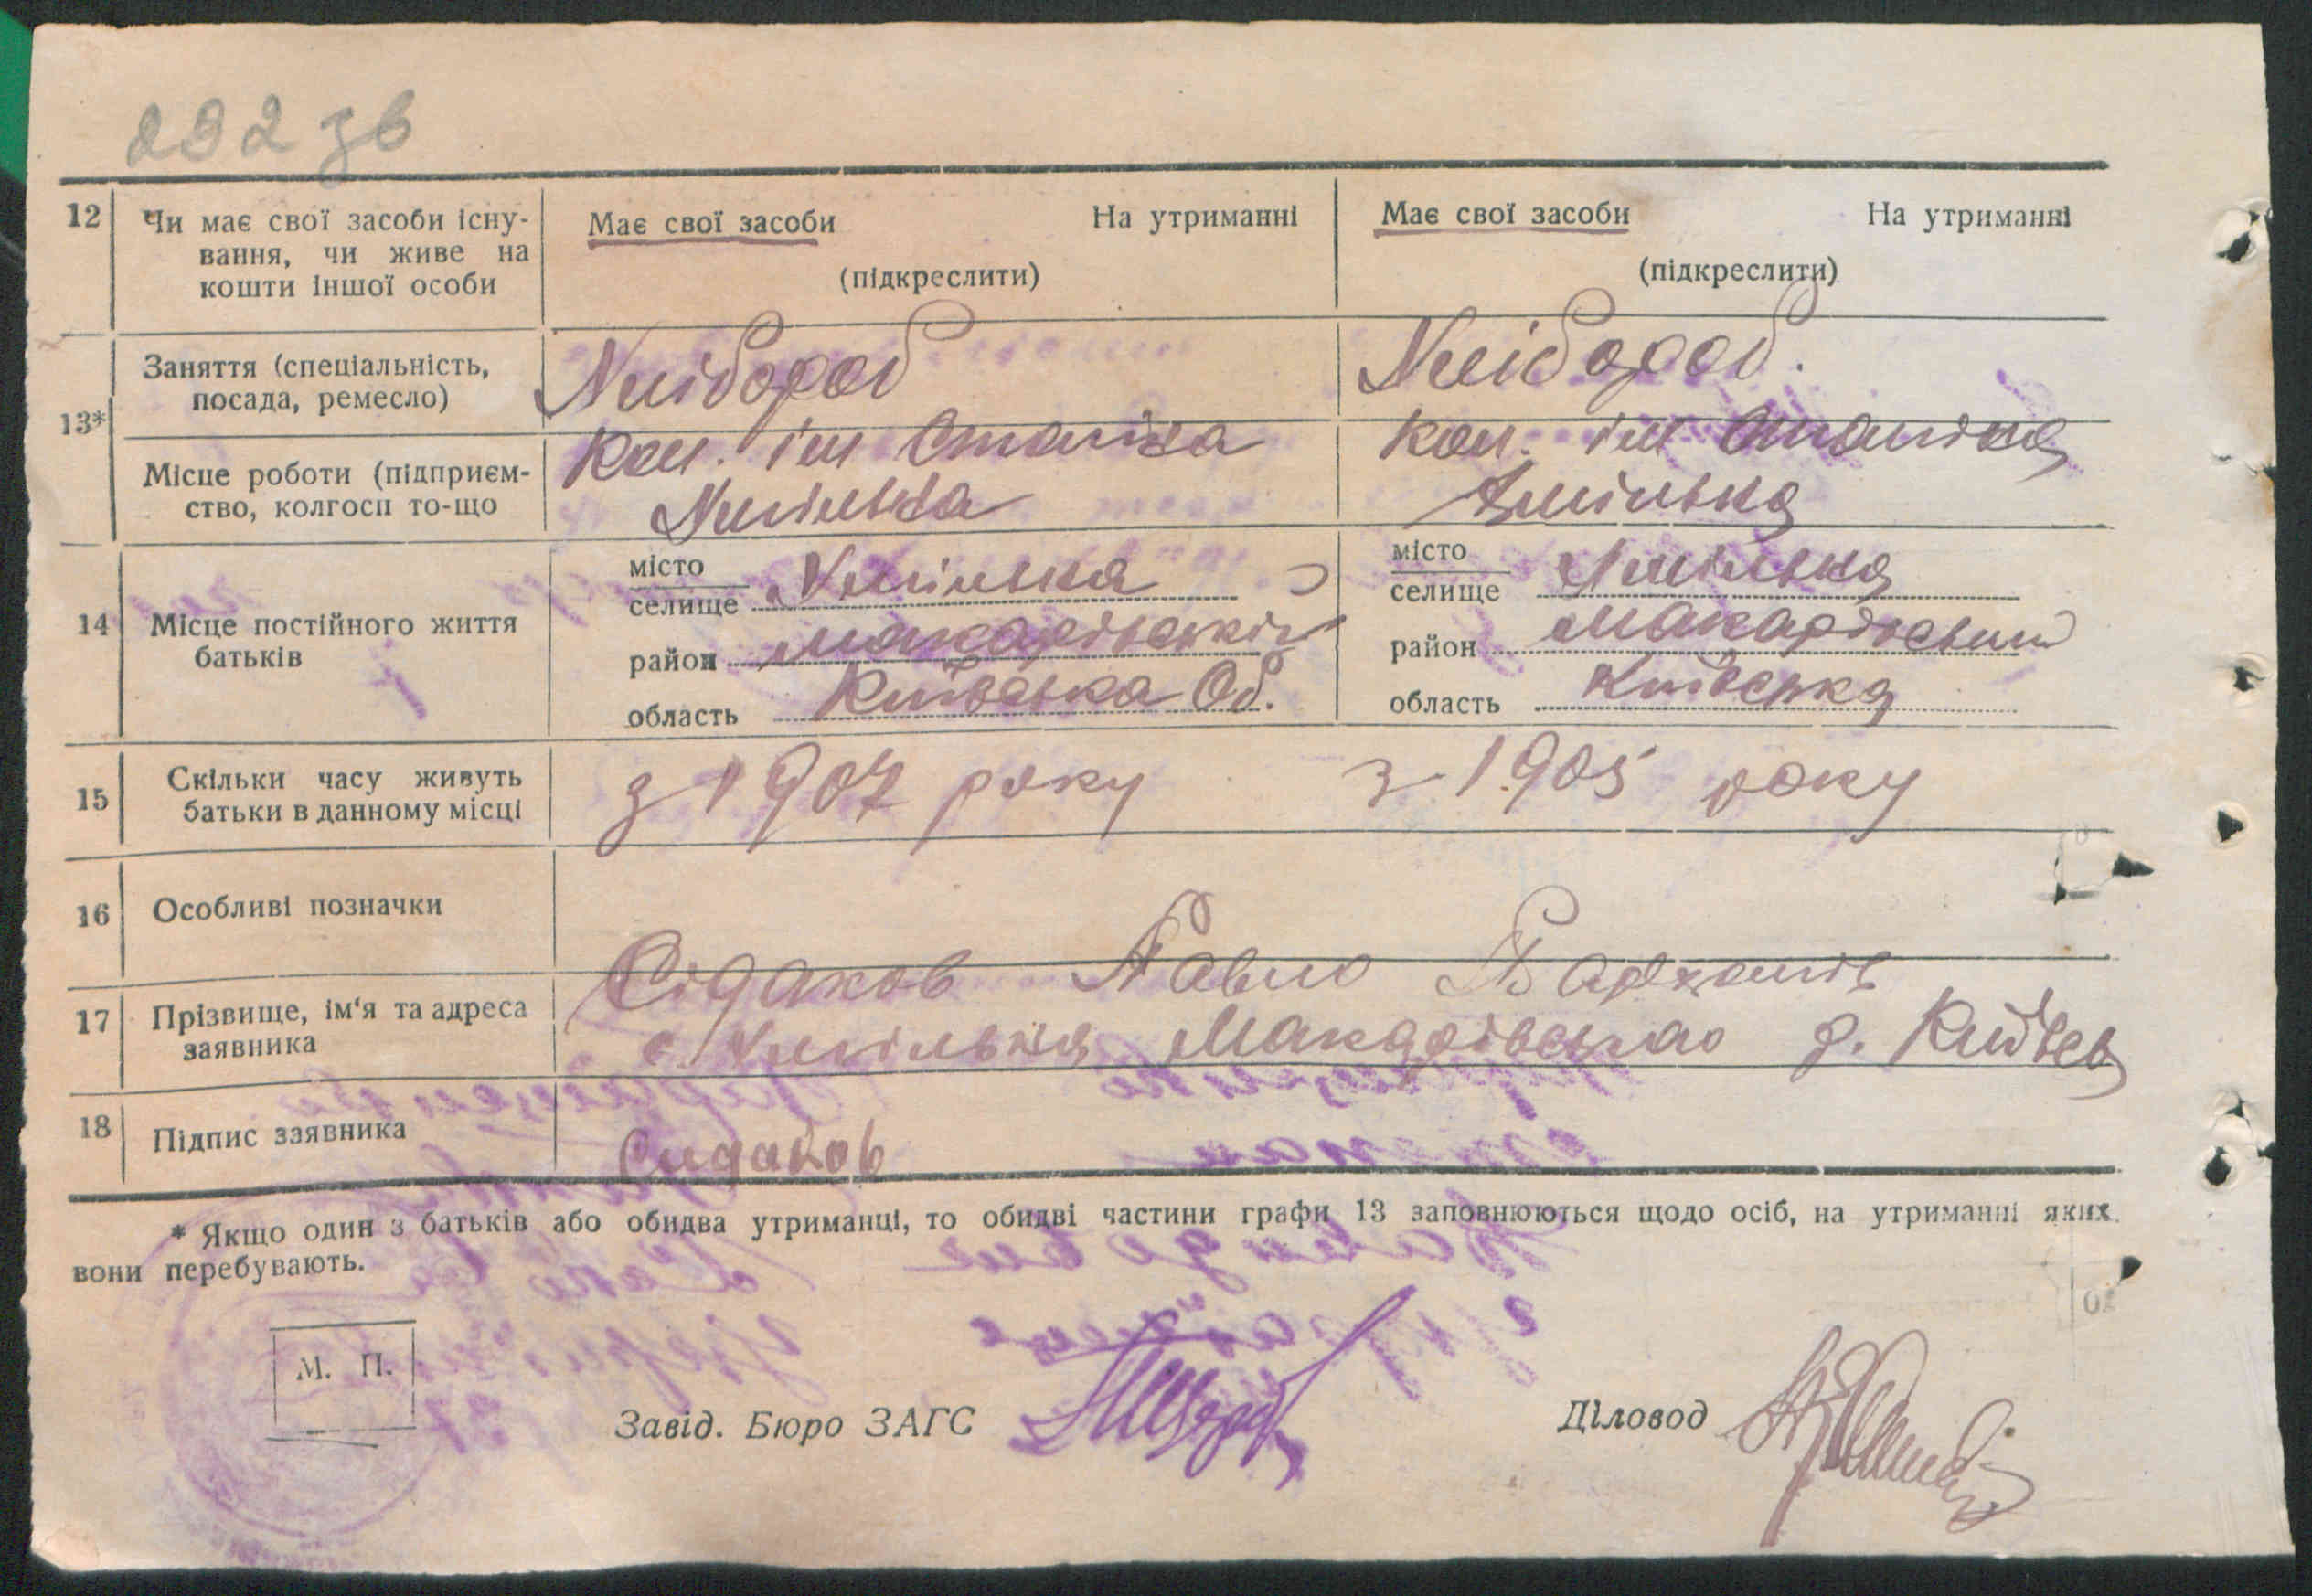 292 зв
12
Чи має свої засоби існу-
вання, чи живе на
кошти іншої особи
Має свої засоби На утриманні
(підкреслити)
Має свої засоби На утриманні
(підкреслити)
13*
Заняття (спеціальність,
посада, ремесло)
Хлібороб
Хлібороб.
Місце роботи (підприєм-
ство, колгосп то-що
Кол. ім Сталіна
Кол. ім Сталіна
14
Місце постійного життя
батьків
місто
селище
район Макарівський
область Київська Об.
місто
селище
район Макарівський
область Київська
15
Скільки часу живуть
батьки в данному місці
з 1907 року
з 1905 року
16
Особливі позначки
17
Прізвище, ім'я та адреса
заявника
Сідаков Павло
с. Макарівського р. Київськ
18
Підпис заявника
Сидаков
* Якщо один з батьків або обидва утриманці, то обидві частини графи 13 заповнюються щодо осіб, на утриманні яких
вони перебувають.
М. П.
Завід. Бюро ЗАГС
Діловод